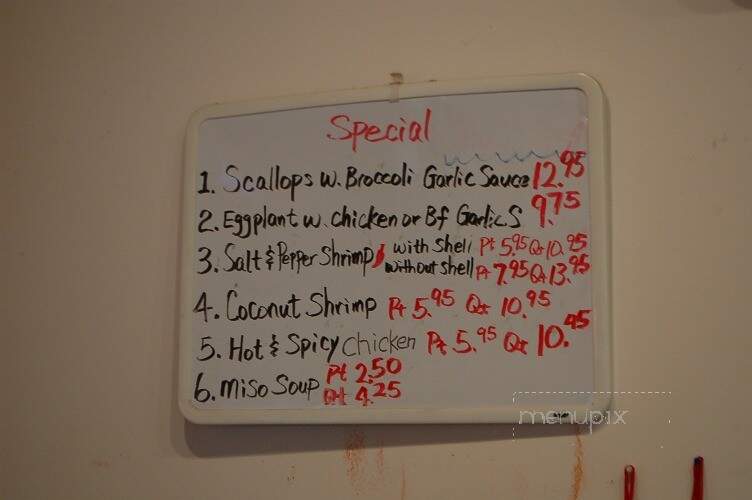 Special
1. Scallops w. Broccoli Garlic Sauce 12.95
2. Eggplant w. chicken or Bf Garlic S 9.75
3. Salt & Pepper Shrimp with Shell Pt 5.95 Qt 10.95
without shell Pt 7.95 Qt 13.95
4. Coconut Shrimp Pt 5.95 Qt 10.95
5. Hot & Spicy Chicken Pt 5.95 Qt 10.95
6. Miso Soup Pt 2.50
Qt 4.25
menupix